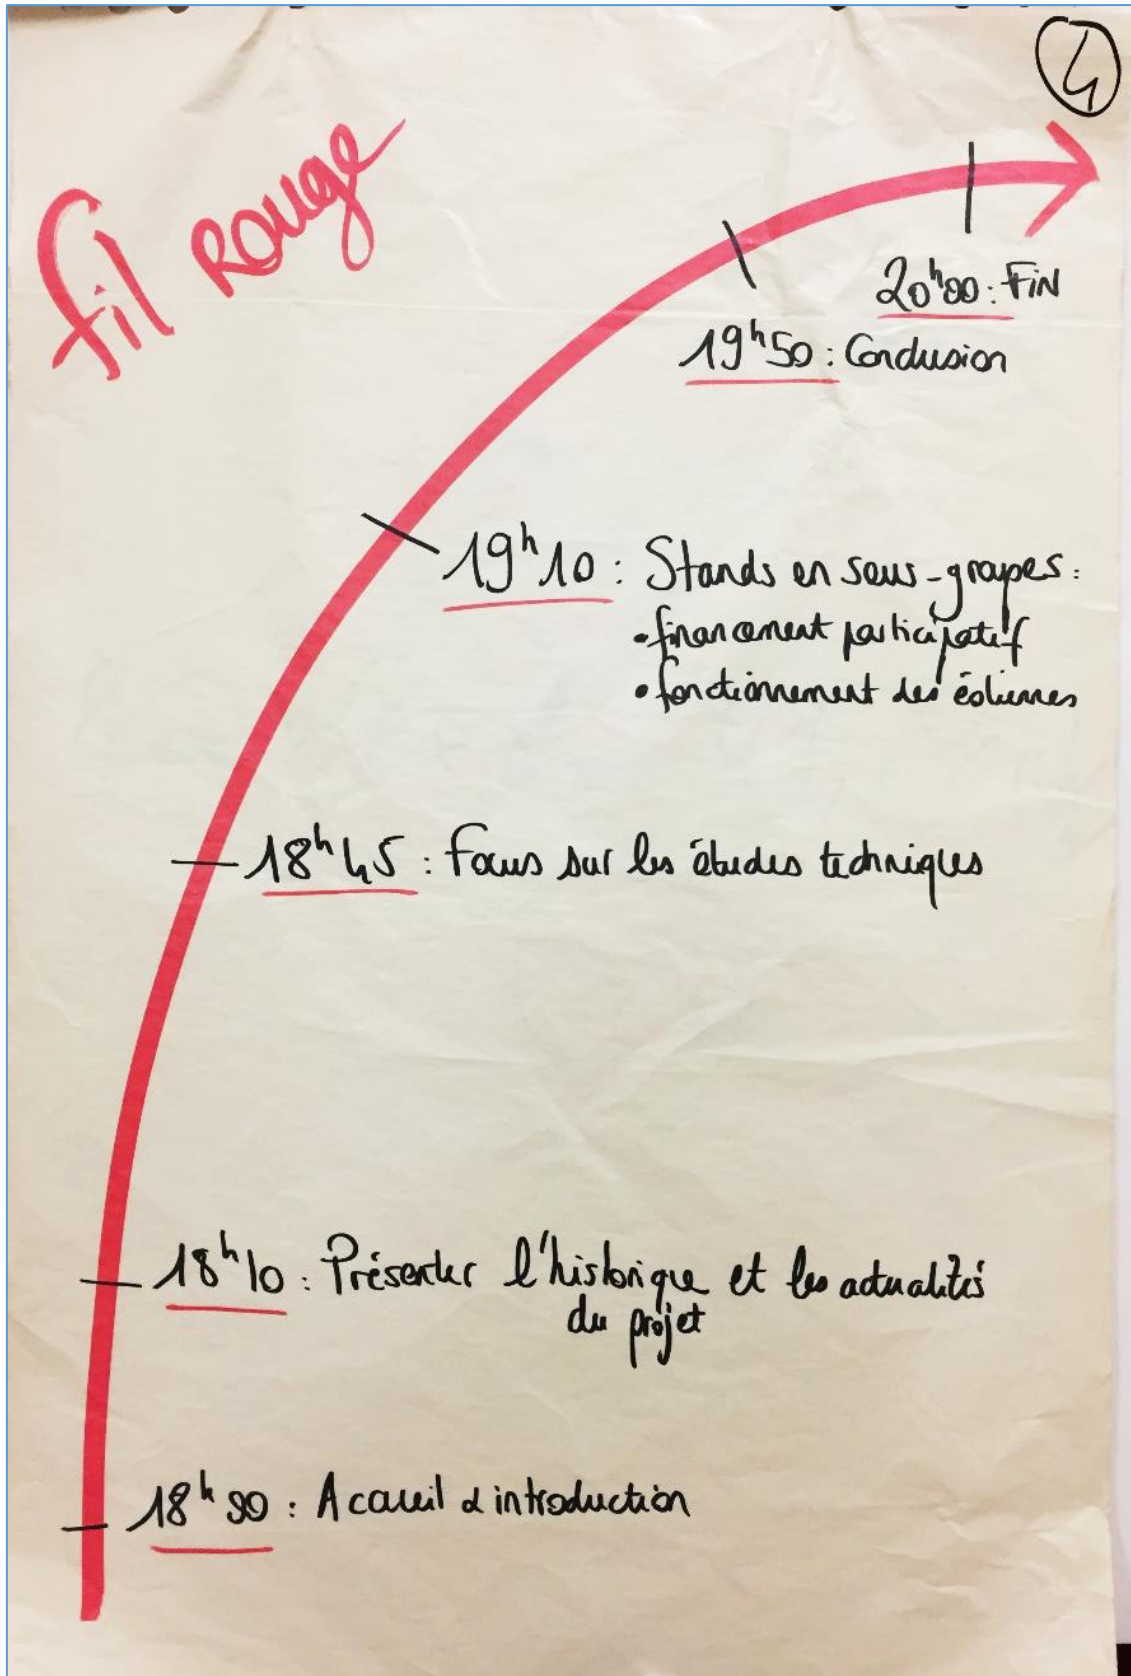 4
fil rouge
20h00 : FIN
19h50 : Conclusion
19h10 : Stands en sous-groupes :
• financement participatif
• fonctionnement des éoliennes
18h45 : Focus sur les études techniques
18h10 : Présenter l'historique et les actualités
du projet
18h00 : Accueil & introduction